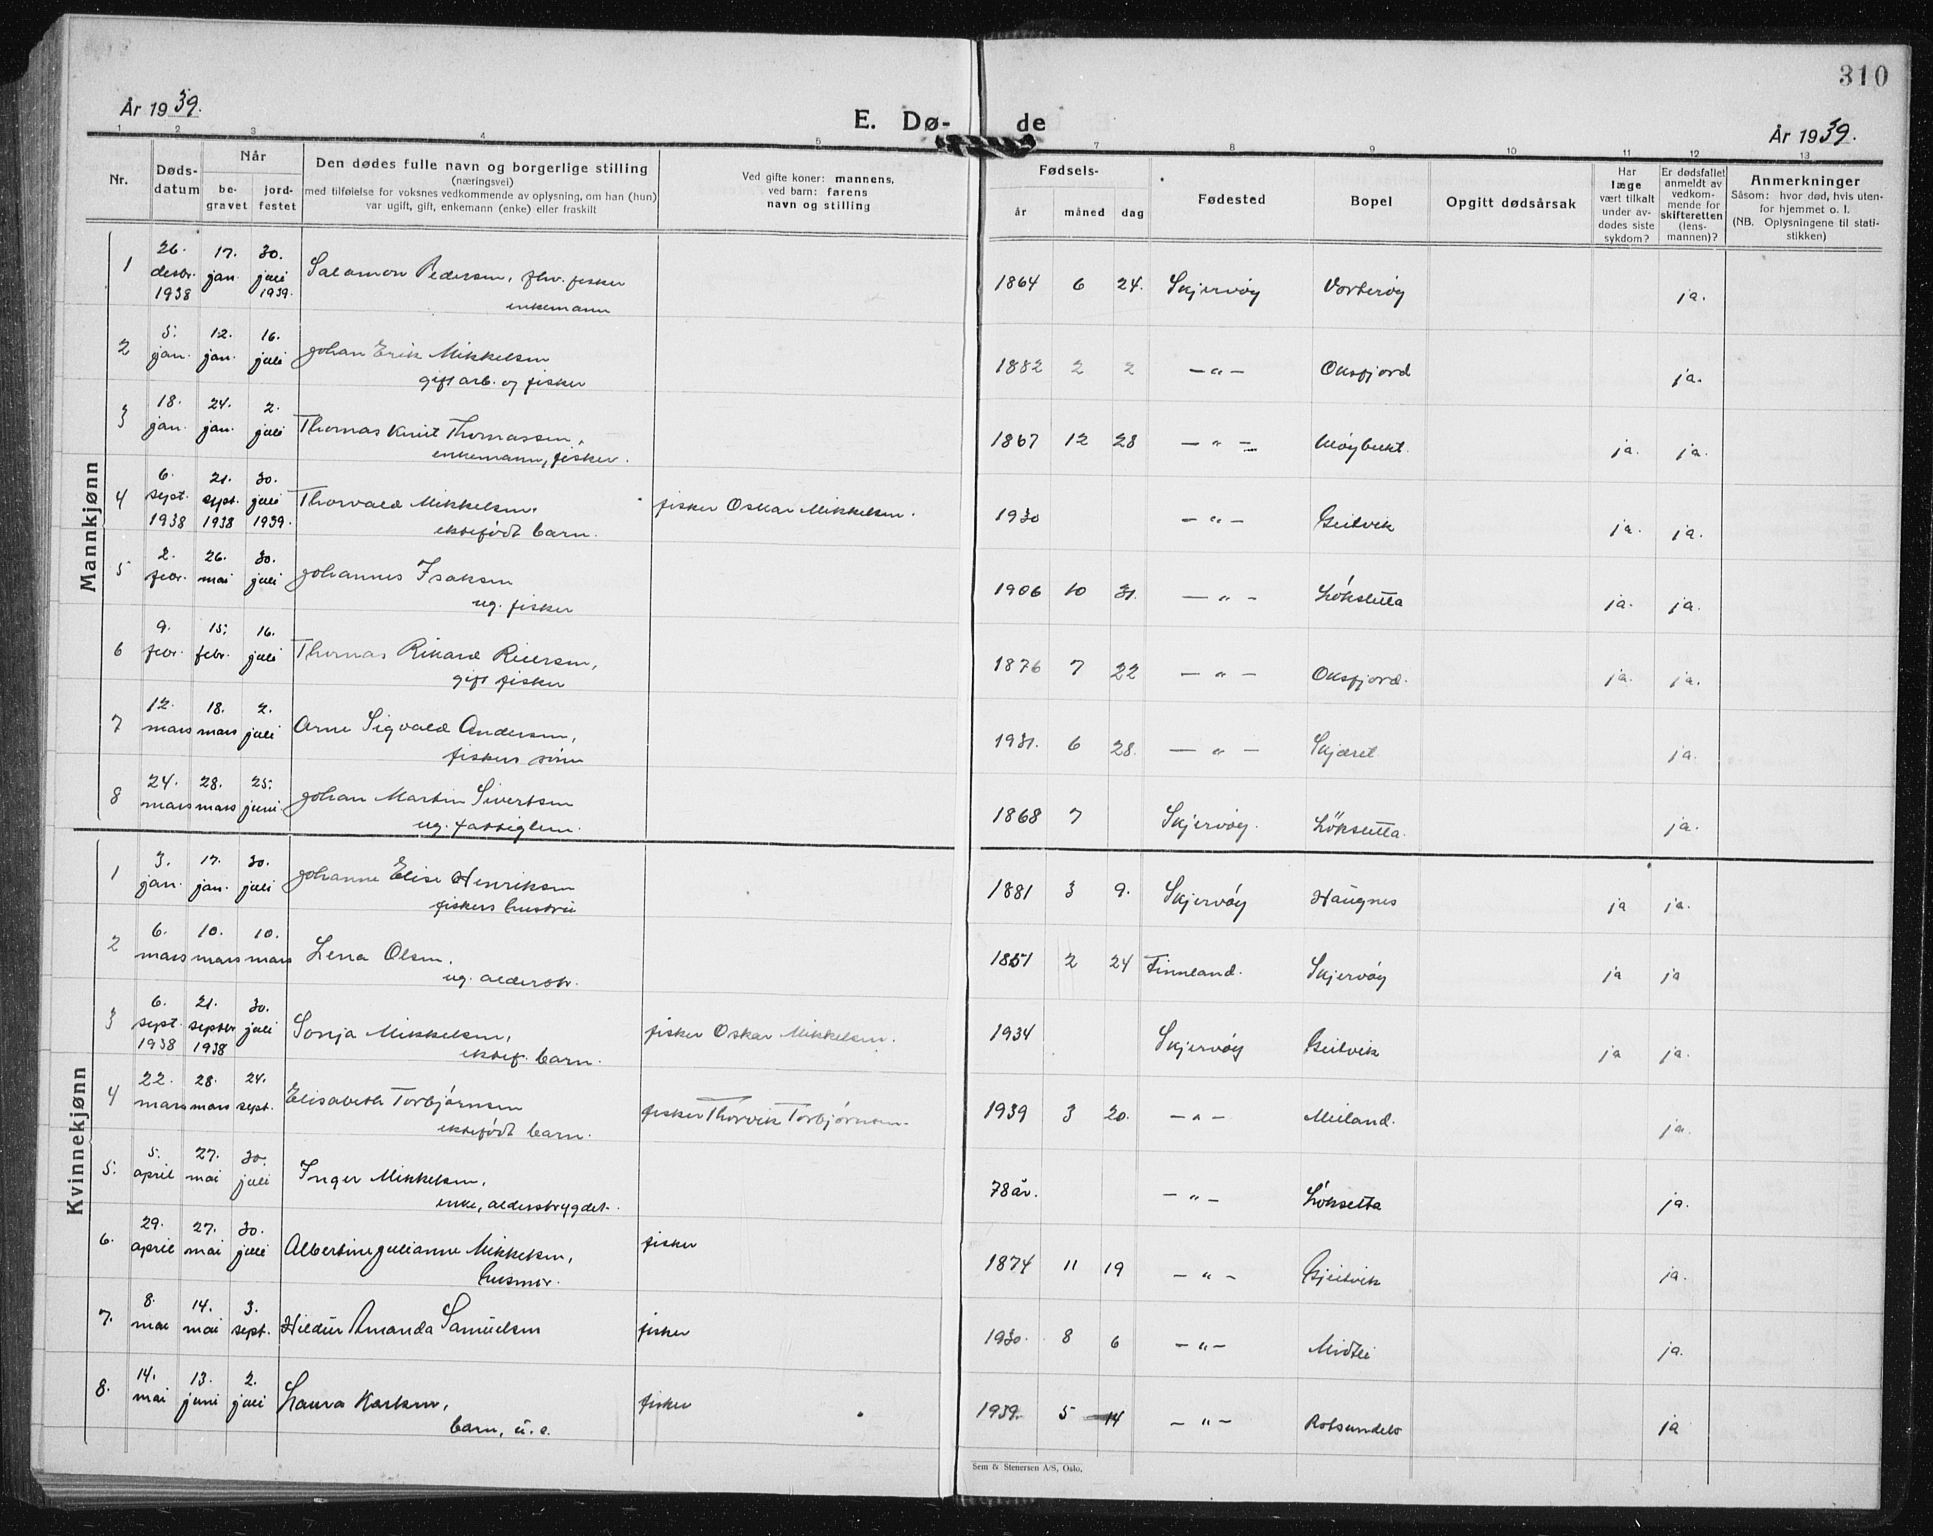 310
År 1939.
E. Dø- de
År 1939.
1 2 3 4 5 7 8 9 10 11 12 13
Nr.
Døds-datum
Når
be-gravet
jord-festet
Den dødes fulle navn og borgerlige stilling
(næringsvei)
med tilføielse for voksnes vedkommende av oplysning, om han (hun)
var ugift, gift, enkemann (enke) eller fraskilt
Ved gifte koner: mannens,
ved barn: farens
navn og stilling
Fødsels-
år måned dag
Fødested
Bopel
Opgitt dødsårsak
Har
læge
vært tilkalt
under av-
dødes siste
sykdom?
Er dødsfallet
anmeldt av
vedkom-
mende for
skifteretten
(lens-
mannen)?
Anmerkninger
Såsom: hvor død, hvis uten-
for hjemmet o. l.
(NB. Oplysningene til stati-
stikken)
Mannkjønn
1 26. desbr. 1938 17. jan. 30. juli 1939. Salamon Pedersen, fhv. fisker
enkemann 1864 6 24. Skjervøy Vorterøy ja.
2 5. jan. 12. jan. 16. juli Johan Erik Mikkelsen
gift arb. og fisker 1882 2 2 — " — Oksfjord ja.
3 18. jan. 24. jan. 2. juli Thomas Knut Thomassen,
enkemann, fisker. 1867 12 28 — " — ja. ja.
4 6. sept. 1938 21. sept. 1938 30. juli 1939. Thorvald Mikkelsen,
ektefødt barn. fisker Oskar Mikkelsen. 1930 — " — Geitvik ja. ja.
5 2. febr. 26. mai 30. juli Johannes Isaksen
ug. fisker 1906 10 31. — " — Løksletta ja. ja.
6 9. febr. 15. febr. 16. juli Thomas Rikard Reiersen,
gift fisker 1876 7 22 — " — Oksfjord. ja. ja.
7 12. mars 18. mars 2. juli Arne Sigvald Andersen,
fiskers sønn 1931. 6 28. — " — Skjæret ja.
8 24. mars 28. mars 25. juni. Johan Martin Sivertsen
ug. fattiglem. 1868 7 Skjervøy. Løksletta. ja.
Kvinnekjønn
1 3. jan. 17. jan. 30. juli Johanne Elise Henriksen
fiskers hustru 1881 3 9. Skjervøy Haugnes ja ja.
2 6. mars 10. mars 10. mars Lena Olsen,
ug. alderstr. 1851 2 24 Finnland. Skjervøy ja ja
3 6. sept. 1938 21. septbr 1938 30. juli Sonja Mikkelsen,
ektef. barn. fisker Oskar Mikkelsen. 1934 Skjervøy Geitvik ja ja.
4 22. mars 28. mars 24. sept. Elisabeth Torbjørnsen
ektefødt barn. fisker Thorvik Torbjørnsen. 1939 3 20. — " — Meiland. ja.
5. 5. april 27. mai 30. juli Inger Mikkelsen,
enke, alderstrygdet. 78 år. — " — Løksetta ja.
6. 29. april 27. mai 30. juli Albertine Julianne Mikkelsen,
husmor. fisker 1874 11 19 — " — Gjeitvik ja.
7. 8. mai 14. mai 3. sept. Hildur Amanda Samuelsen fisker 1930. 8 6 — " — Midtli ja.
8. 14. mai 13. juni 2. juli Laura Karlsen,
barn, u. e. fisker 1939. 5 14 — " — Rotsundelv ja
Sem & Stenersen A/S, Oslo.